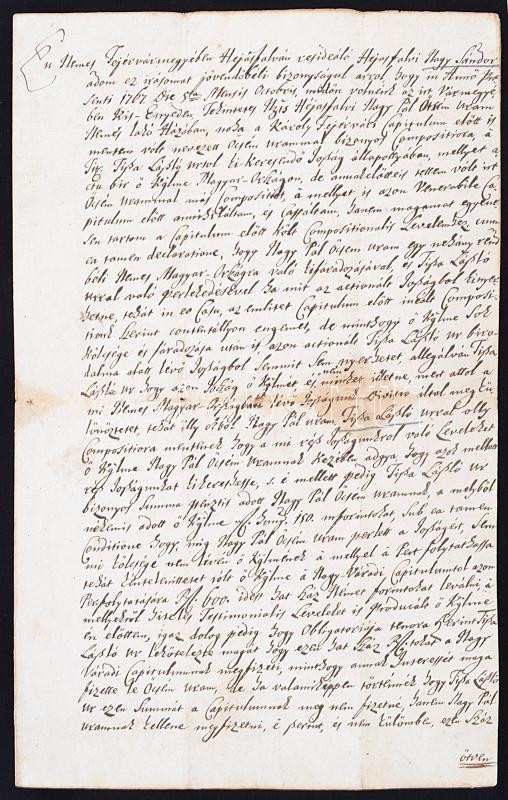 En Nemes Fejérvármegyében Héjasfalván residéáló Héjasfalvi Nagy Sándor
adom ez irásomat jövendőbéli bizonyságul arrol, hogy in Anno Præ-
senti 1767 Die 8va Mensis Octobris, midőn volnék az irt Vármegyé-
ben Kis-Enyeden, Tekintetes Ngs Héjasfalvi Nagy Pál Öcsém Uram
Nemes lakó Házában, noha a Károly Fejérvári Capitulum előtt is
mentem vólt nevezett Öcsém Urammal bizonyos Compositiora, á
Tisza László Urtol ki keresendő Joszág állapottyában, mellyet a
bir ő Kglme Magyar-Országon, de annakelőtte is tettem vólt irt
Öcsém Urammal más Compositiót, á mellyet is azon Venerabile Ca-
pitulum előtt annihiláltam, és Cassáltam, hanem magamat egyene-
sen tartom a Capitulum előtt költ Compositionalis Levelemhez cum
ea tamen declaratione, hogy Nagy Pál Öcsém Uram egy nehány rend-
béli Nemes Magyar-Országra való kifáradozásával, és Tisza László
Urral való perlekedésével ha mit az actionált Joszágbol kinyer-
hetne, tehát in eo Casu, az emlitet Capitulum előtt inéált Composi-
tionk szerint contentállyon engemet, de minthogy ő Kglme sok
költsége és fáradozása után is, azon actionált Tisza László Ur biro-
dalma alatt lévő Joszágbol semmit sem nyerhetett, allegálván Tisza
László Ur hogy azon Joszág ő Kglmét és nem minket illetne, mert attol a
mi Nemes Magyar Országban lévő Joszágunk Divisio által meg kü-
lönöztetet, tehát illy okbol Nagy Pál Uram, Tisza László Urral olly
Compositiora mentenek hogy a mi rész Joszágunkrol való Leveleket
ő Kglme Nagy Pál Öcsém Uramnak kezében adgya, hogy azok mellett
rész Joszágunkat kikereshesse, s. é mellett pedig Tisza László Ur
bizonyos Summa pénzt is adott Nagy Pál Öcsém Uramnak, a melyböl
nékem is adott ő Kglme Hung. 150. inforintokat, sub ea tamen
Conditione hogy, mig Nagy Pál Öcsém Uram perlett a Joszágért, sem-
mi költsége nem lévén ő Kglmének á mellyel a Pert folytathassa
tehát kéntelenittetett vólt ő Kglme á Nagy-Váradi Capitulumtol azon
Perfolytatására Rf. 600. idest hat száz Német forintokat leválni, á
mellyekröl hiteles Testimonialis Leveleket is producált ő Kglme
en előttem, igaz dolog pedig hogy Obligatoriája tenora szerint Tisza
László Ur lekötelezte magát hogy ezen hat száz Rftokat a Nagy
Váradi Capitulumnak megfizeti, minthogy annak Interessét maga
fizette le Öcsém Uram, de ha valamiképpen történnék hogy Tisza László
Ur ezen Summát a Capitulumnak meg nem fizetné, hanem Nagy Pál
Uramnak kellene megfizetni, é szerint, és nem külömben, ezen száz
ötven